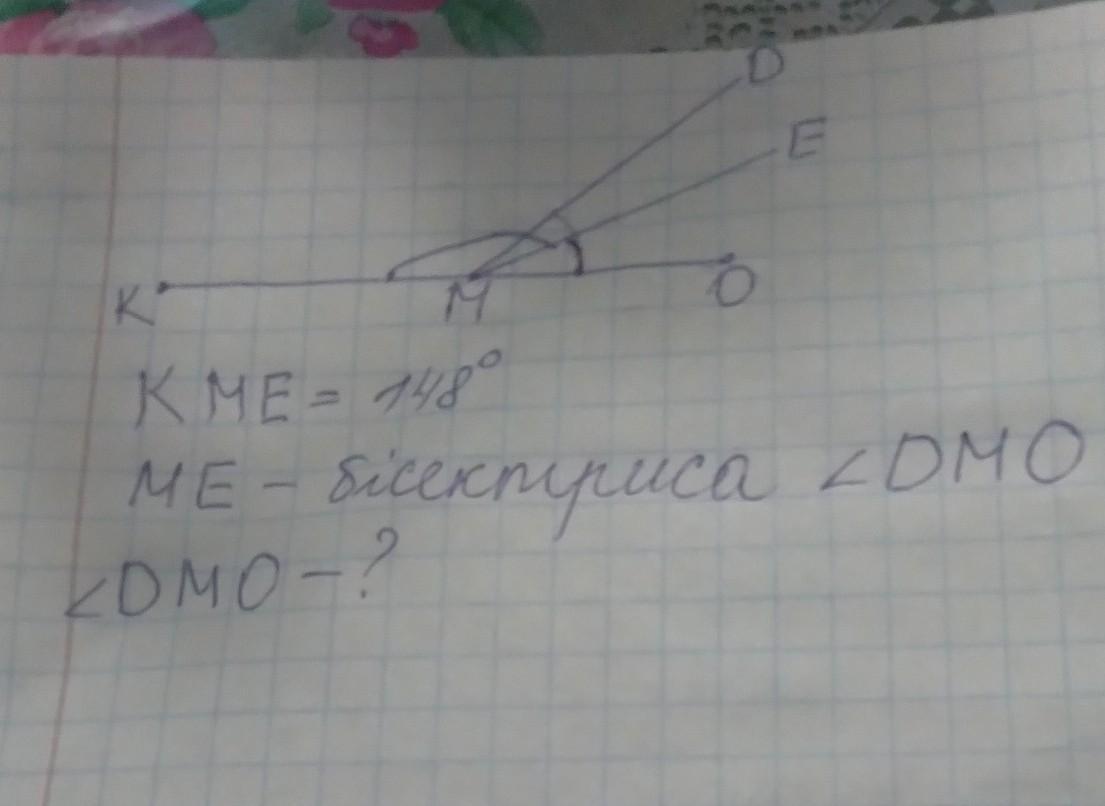 D
E
K M O
KME = 148°
ME - бісектриса ∠DMO
∠DMO - ?